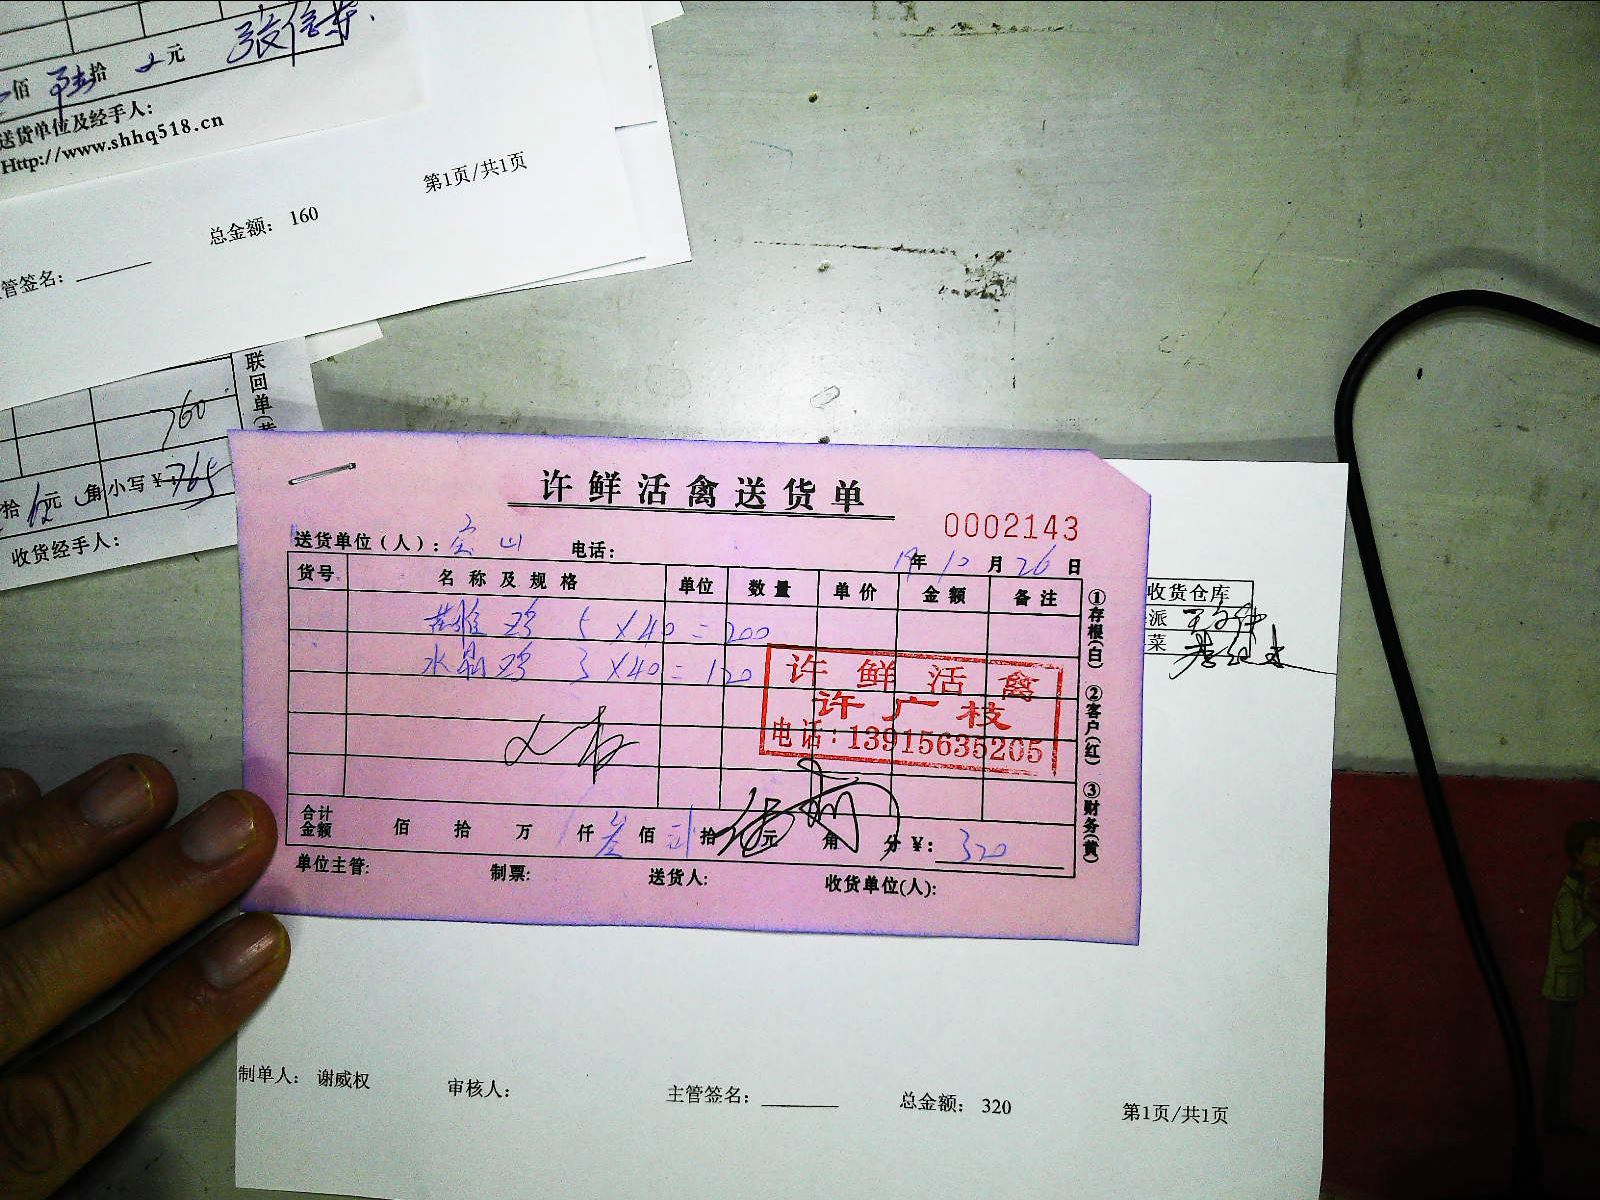 佰 陆拾 元
送货单位及经手人：
Http://www.shhq518.cn
第1页/共1页
总金额： 160
管签名：
联回单(黄
760
拾 元 角 小写￥ 765
收货经手人：
许鲜活禽送货单
0002143
送货单位（人）： 宝山 电话：
19年 10月 26日
货号 名称及规格 单位 数量 单价 金额 备注
鸡 5×40=200
水晶鸡 3×40=120
许鲜活禽
许广枝
电话：13915635205
合计金额 佰 拾 万 仟 叁佰 贰拾 元 角 分 ￥： 320
单位主管： 制票： 送货人： 收货单位(人)：
①存根(白) ②客户(红) ③财务(黄)
收货仓库
派
菜
制单人： 谢威权 审核人： 主管签名： 总金额： 320 第1页/共1页